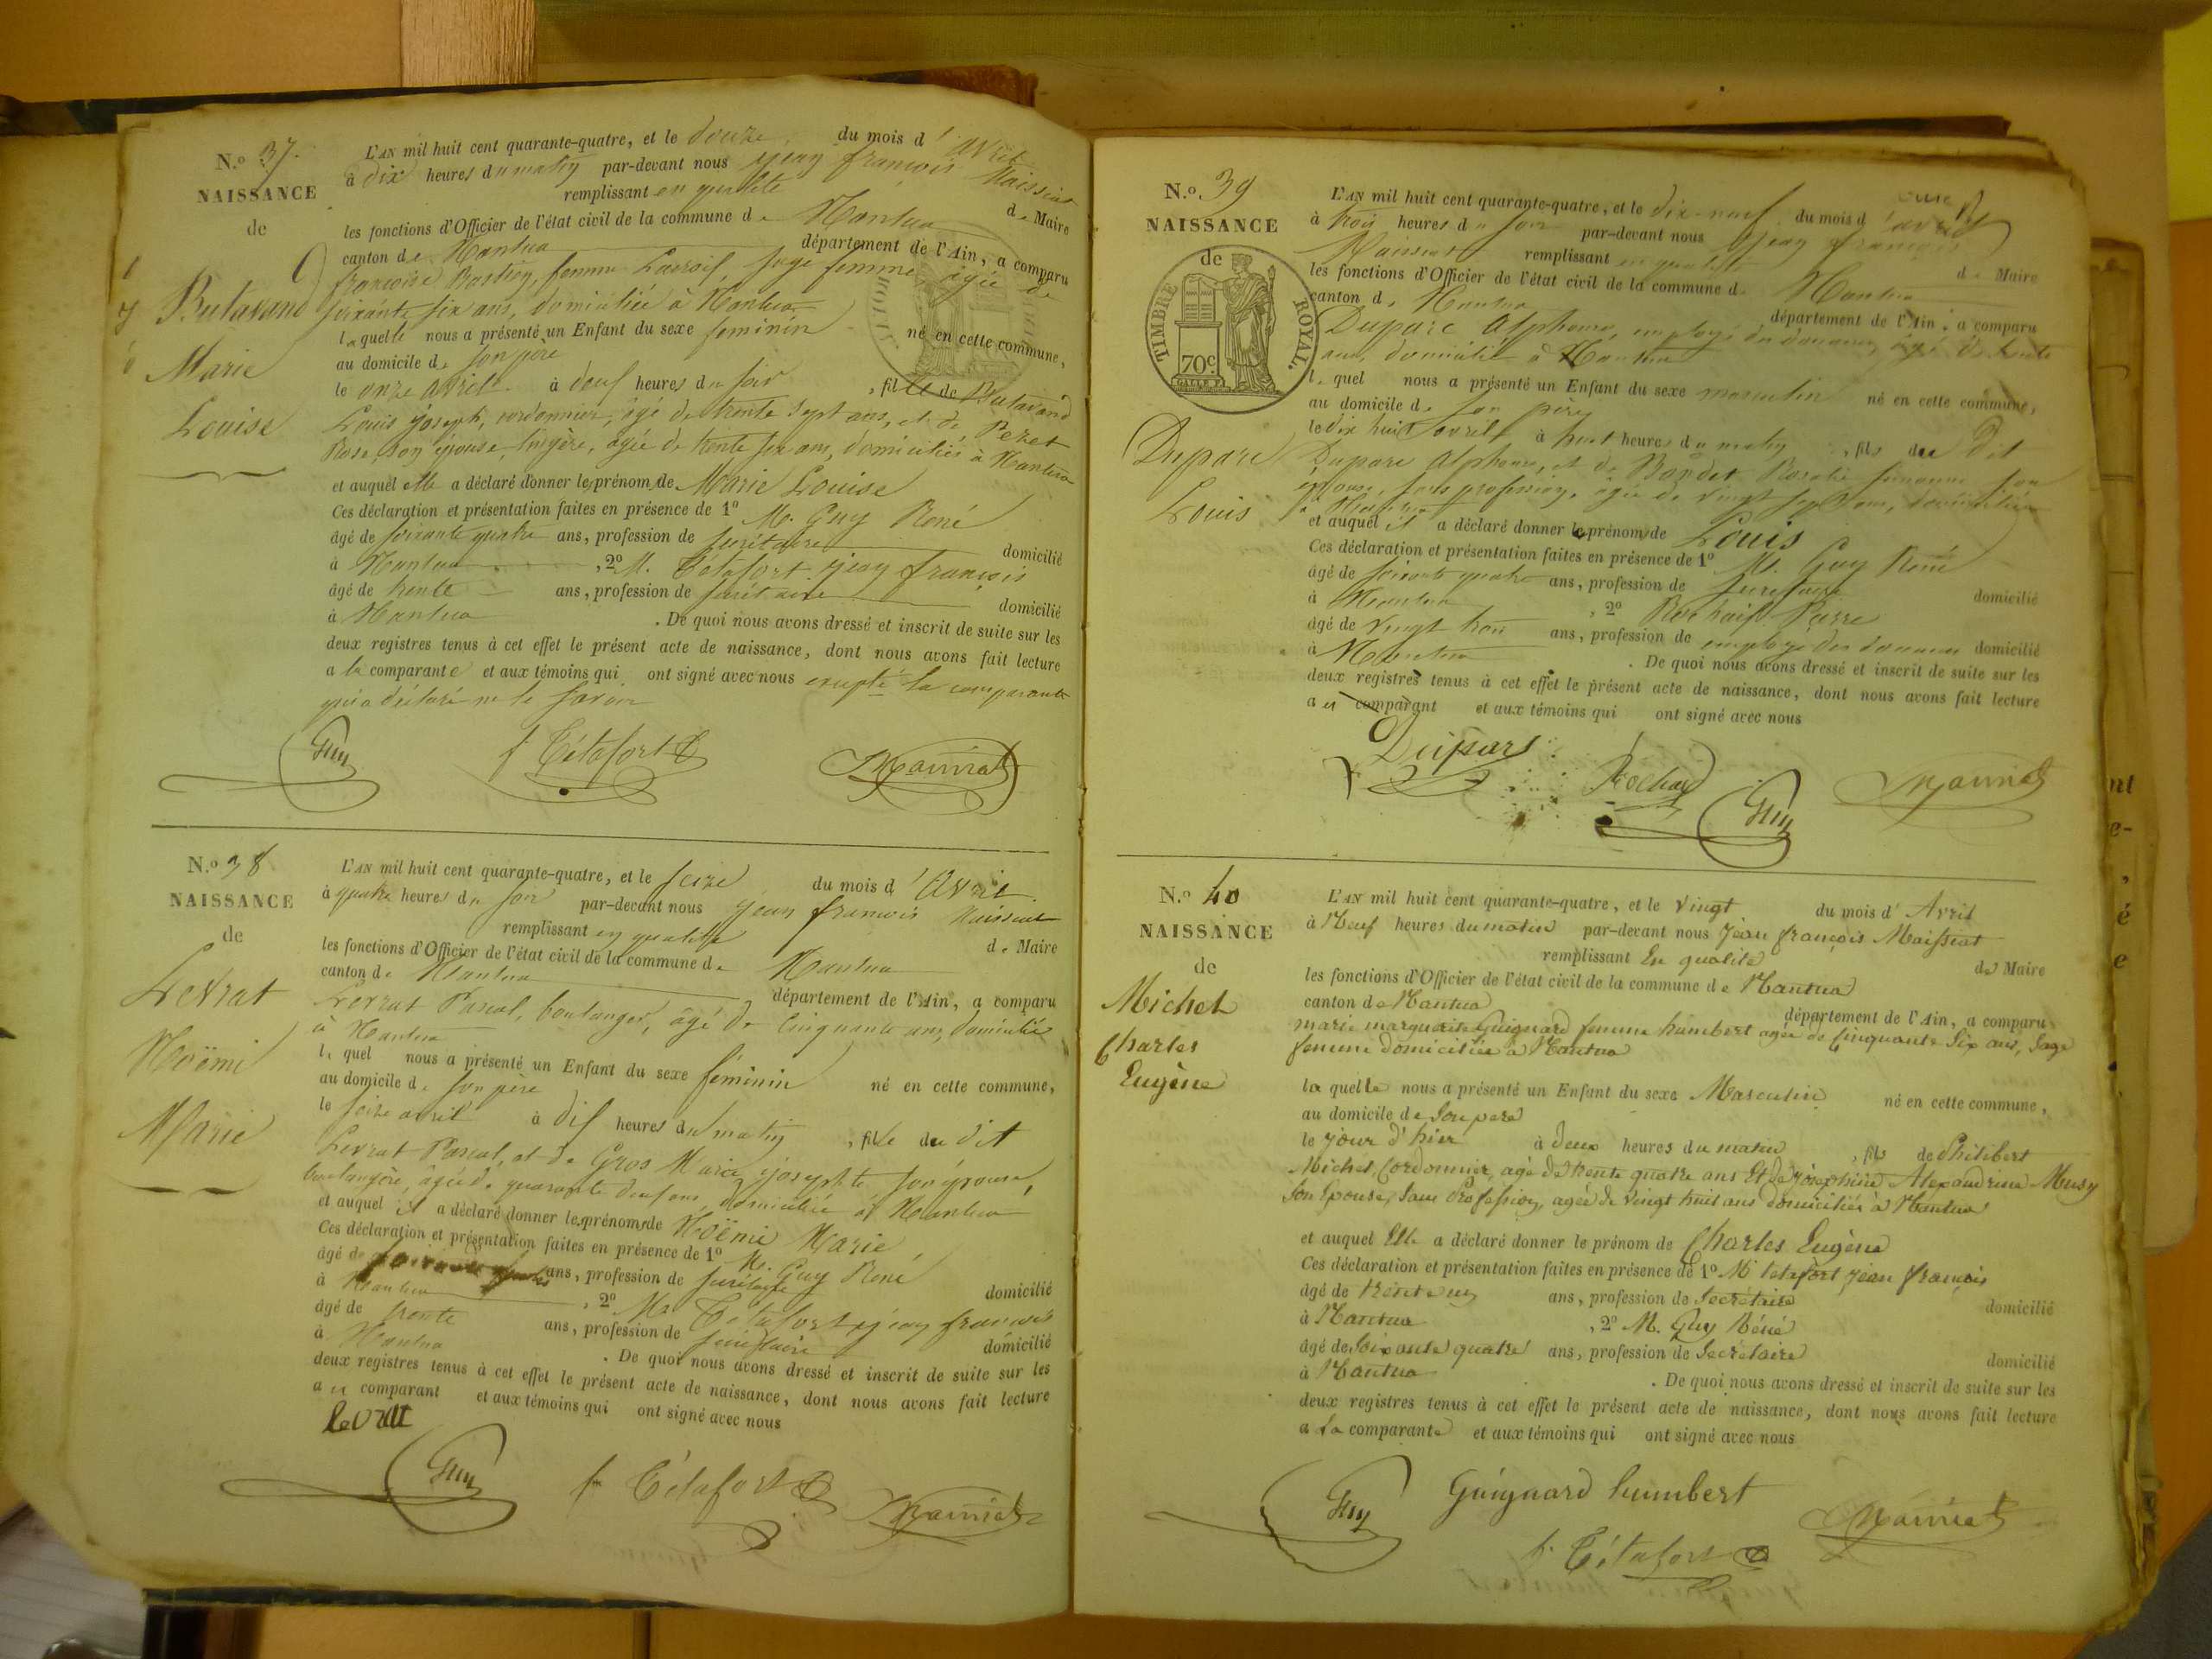 N.o 37.
NAISSANCE
de
Butavand
Marie
Louise
L'AN mil huit cent quarante-quatre, et le douze du mois d'avril
à dix heures du matin par-devant nous jean françois Maissiat
remplissant en qualité de Maire
les fonctions d'Officier de l'état civil de la commune de Nantua
canton de Nantua département de l'Ain, a comparu
françoise femme sage femme, âgée de
soixante six ans, domiciliée à Nantua
laquelle nous a présenté un Enfant du sexe feminin né en cette commune,
au domicile de son père
le onze avril à deux heures du soir, fille de Butavand
Louis joseph, cordonnier, âgé de trente sept ans, et de Peret
Rose, son épouse, lingère, âgée de trente six ans, domiciliés à Nantua
et auquel elle a déclaré donner les prénoms de Marie Louise
Ces déclaration et présentation faites en présence de 1o M. Guy René
âgé de soixante quatre ans, profession de secrétaire domicilié
à Nantua, 2o M. Tétafort jean françois
âgé de trente ans, profession de secrétaire domicilié
à Nantua. De quoi nous avons dressé et inscrit de suite sur les
deux registres tenus à cet effet le présent acte de naissance, dont nous avons fait lecture
a la comparante et aux témoins qui ont signé avec nous excepté la comparante
qui a déclaré ne le savoir
Guy f Tétafort Maissiat
N.o 38
NAISSANCE
de
Levrat
Noëmi
Marie
L'AN mil huit cent quarante-quatre, et le seize du mois d'Avril
à quatre heures du soir par-devant nous jean françois Maissiat
remplissant en qualité de Maire
les fonctions d'Officier de l'état civil de la commune de Nantua
canton de Nantua département de l'Ain, a comparu
Levrat Pascal, boulanger, âgé de cinquante ans, domicilié
à Nantua
lequel nous a présenté un Enfant du sexe féminin né en cette commune,
au domicile de son père
le seize avril à dix heures du matin, fille du dit
Levrat Pascal, et de Gros Marie josephte son épouse,
boulangère, âgée de quarante deux ans, domiciliée à Nantua
et auquel il a déclaré donner les prénoms de Noëmi Marie,
Ces déclaration et présentation faites en présence de 1o M. Guy René
âgé de soixante quatre ans, profession de secrétaire domicilié
à Nantua, 2o Mr Tétafort jean françois
âgé de trente ans, profession de secrétaire domicilié
à Nantua. De quoi nous avons dressé et inscrit de suite sur les
deux registres tenus à cet effet le présent acte de naissance, dont nous avons fait lecture
au comparant et aux témoins qui ont signé avec nous
levrat
Guy f Tétafort Maissiat
N.o 39
NAISSANCE
de
TIMBRE ROYAL.
70c.
Duparc
Louis
L'AN mil huit cent quarante-quatre, et le dix-neuf du mois d'avril
à trois heures du soir par-devant nous jean françois
Maissiat remplissant en qualité de Maire
les fonctions d'Officier de l'état civil de la commune de Nantua
canton de Nantua département de l'Ain, a comparu
Duparc Alphonse, employé des douanes, âgé de trente
ans, domicilié à Nantua
lequel nous a présenté un Enfant du sexe masculin né en cette commune,
au domicile de son père
le dix huit avril à huit heures du matin, fils du dit
Duparc Alphonse, et de Bordet Rosalie son
épouse, sans profession, âgée de vingt sept ans, domiciliée
à Nantua
et auquel il a déclaré donner le prénom de Louis
Ces déclaration et présentation faites en présence de 1o M. Guy René
âgé de soixante quatre ans, profession de secrétaire domicilié
à Nantua, 2o Rochaix Pierre
âgé de vingt trois ans, profession de employé des douanes domicilié
à Nantua. De quoi nous avons dressé et inscrit de suite sur les
deux registres tenus à cet effet le présent acte de naissance, dont nous avons fait lecture
au comparant et aux témoins qui ont signé avec nous
Duparc Rochaix Guy Maissiat
N.o 40
NAISSANCE
de
Michel
Charles
Eugène
L'AN mil huit cent quarante-quatre, et le vingt du mois d'Avril
à Neuf heures du matin par-devant nous jean françois Maissiat
remplissant En qualité de Maire
les fonctions d'Officier de l'état civil de la commune de Nantua
canton de Nantua département de l'Ain, a comparu
marie marguerite Guignard femme humbert agée de Cinquante Six ans, Sage
femme domiciliée à Nantua
laquelle nous a présenté un Enfant du sexe Masculin né en cette commune,
au domicile de Son pere
le jour d'hier à deux heures du matin, fils de Philibert
Michel, Cordonnier, agé de trente quatre ans Et de josephine Alexandrine Musy
Son Epouse, Sans Profession, agée de Vingt huit ans domiciliés à Nantua
et auquel Elle a déclaré donner le prénom de Charles Eugène
Ces déclaration et présentation faites en présence de 1o Mr tetafort jean françois
âgé de trente un ans, profession de Secrétaire domicilié
à Nantua, 2o M. Guy Réné
âgé de Soixante quatre ans, profession de Secrétaire domicilié
à Nantua. De quoi nous avons dressé et inscrit de suite sur les
deux registres tenus à cet effet le présent acte de naissance, dont nous avons fait lecture
a La comparante et aux témoins qui ont signé avec nous
Guy Guignard humbert Maissiat
f. Tétafort